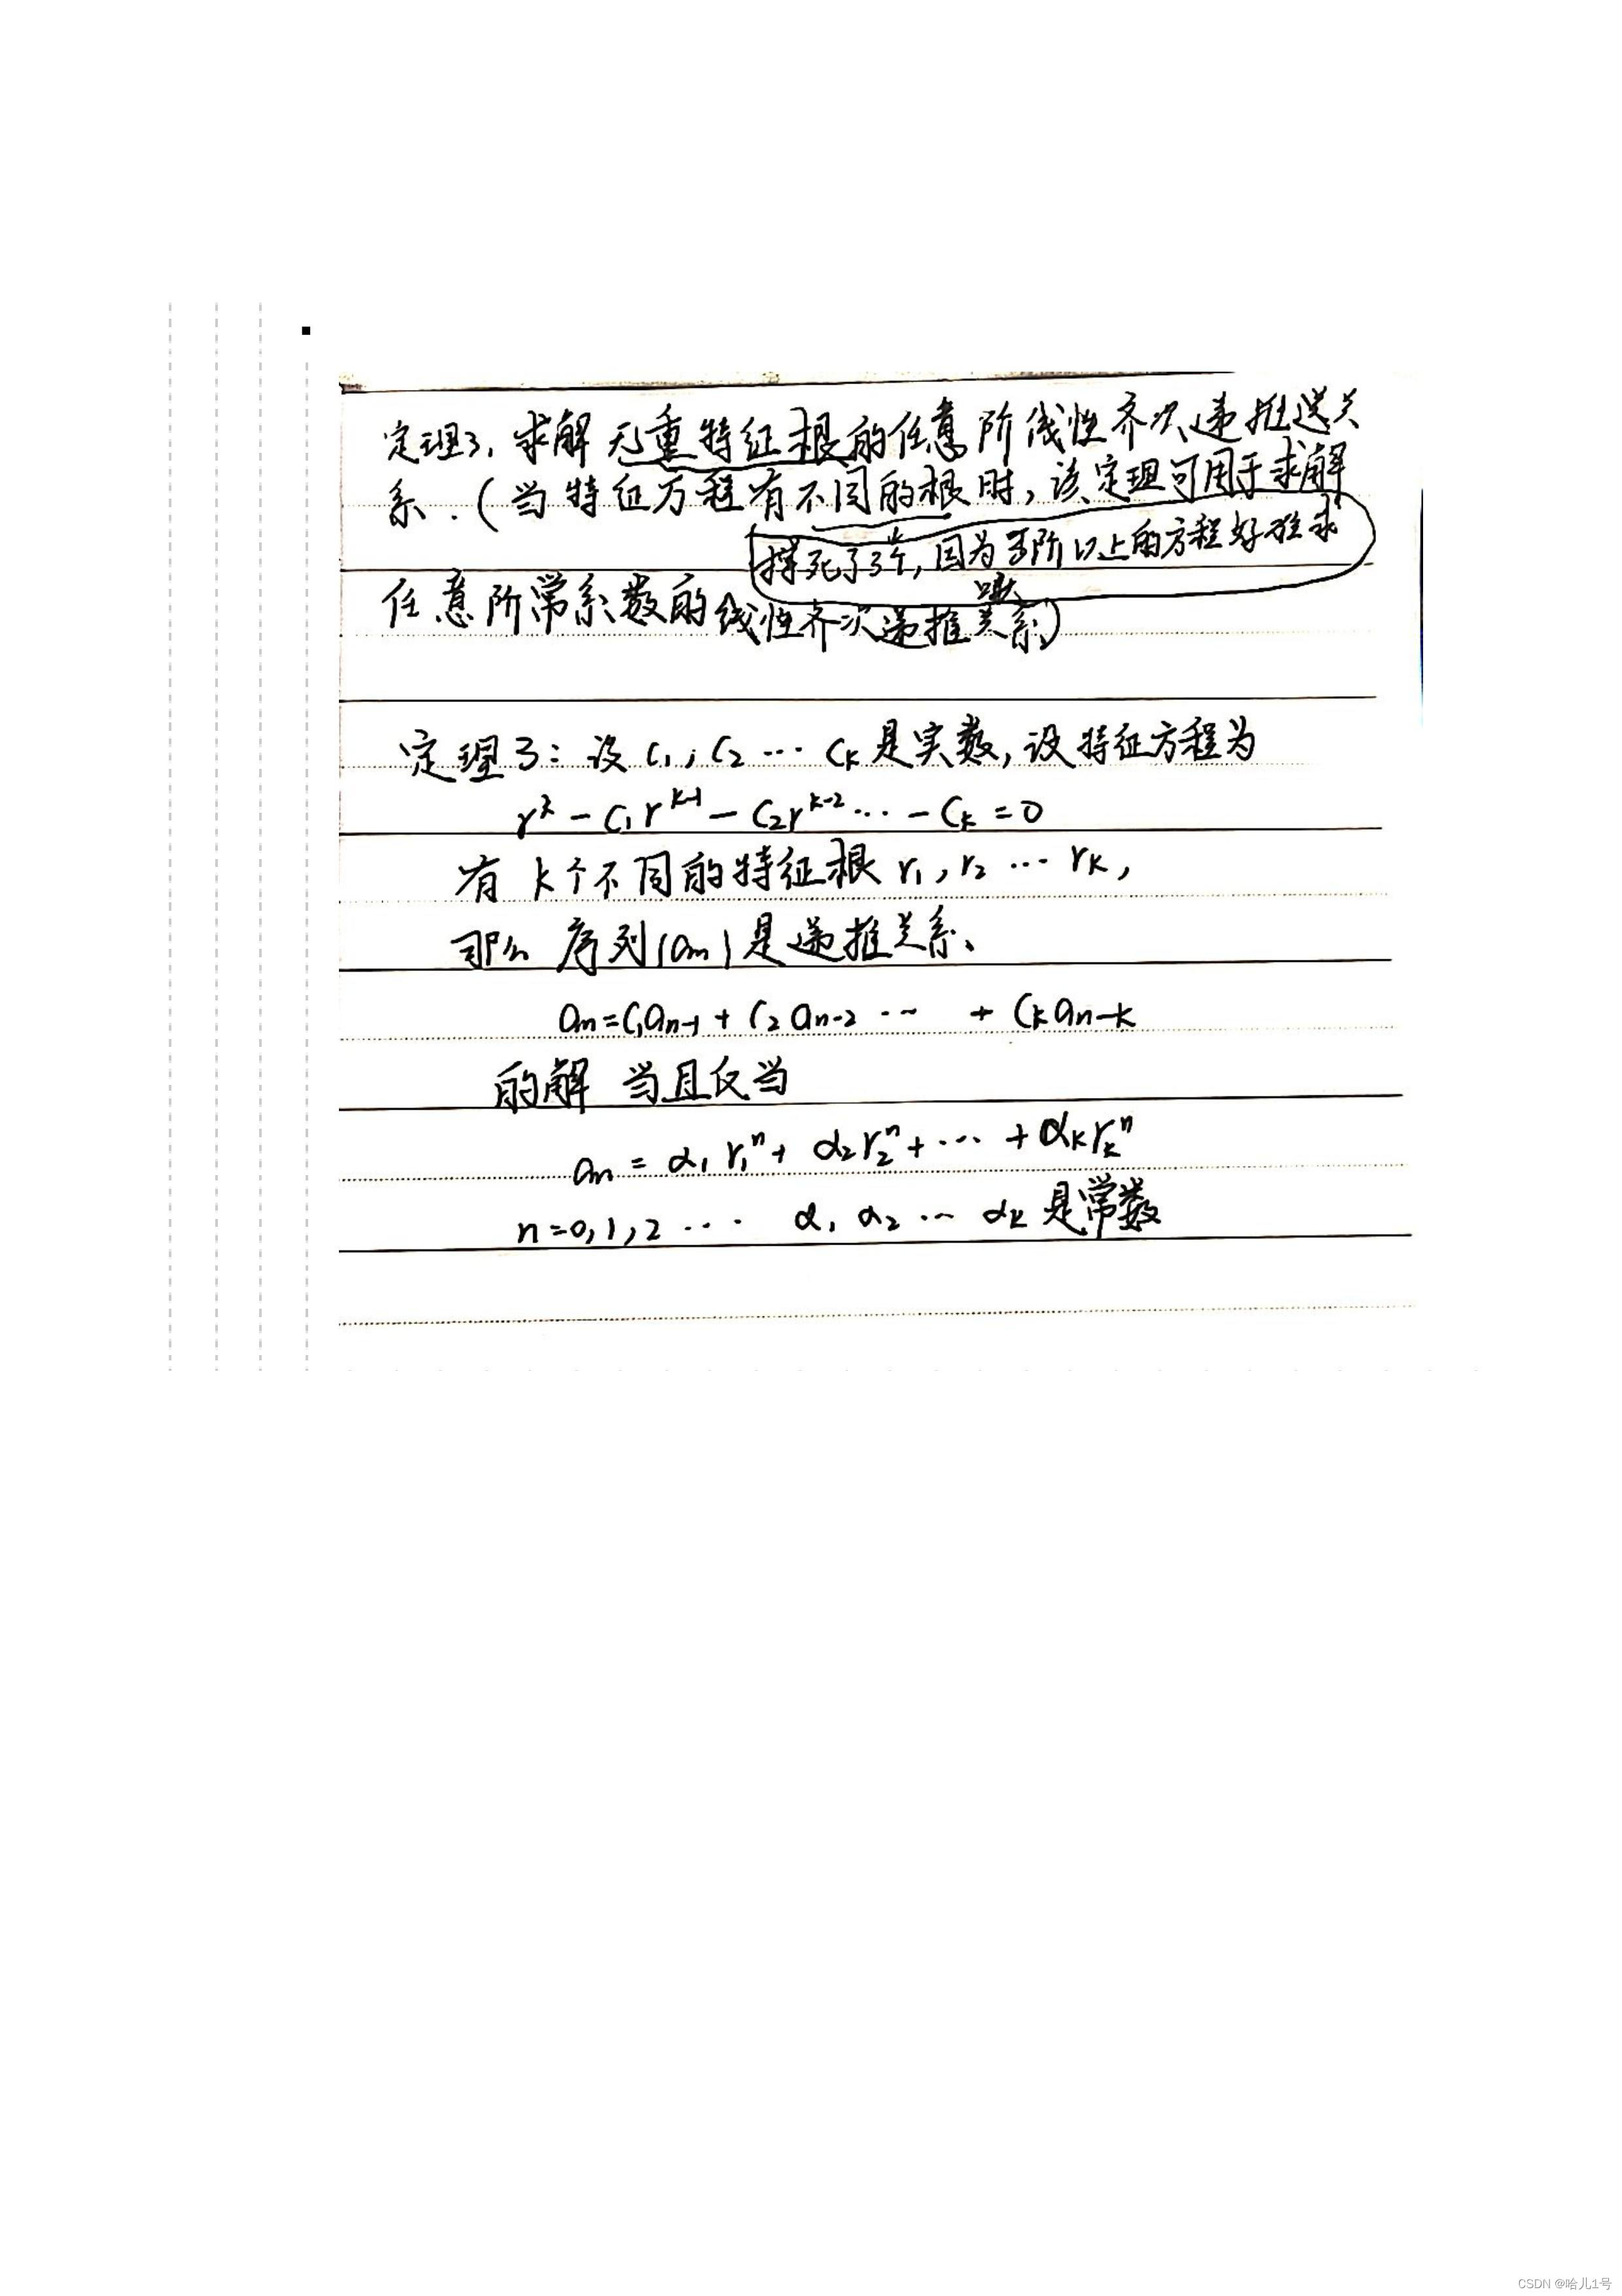 定理3. 求解无重特征根的任意阶线性齐次递推送关
系.(当特征方程有不同的根时,该定理可用于求解
撑死了3个,因为3阶以上的方程好难求
任意阶常系数的线性齐次递推关系)
定理3:设 c₁, c₂ … cₖ 是实数,设特征方程为
rᵏ - c₁rᵏ⁻¹ - c₂rᵏ⁻² … - cₖ = 0
有 k个不同的特征根 r₁, r₂ … rₖ,
那么 序列{aₙ}是递推关系、
aₙ=c₁aₙ₋₁ + c₂aₙ₋₂ … + cₖaₙ₋ₖ
的解 当且仅当
aₙ = α₁r₁ⁿ + α₂r₂ⁿ + … + αₖrₖⁿ
n=0,1,2 … α₁ α₂ … αₖ 是常数
CSDN @哈儿1号